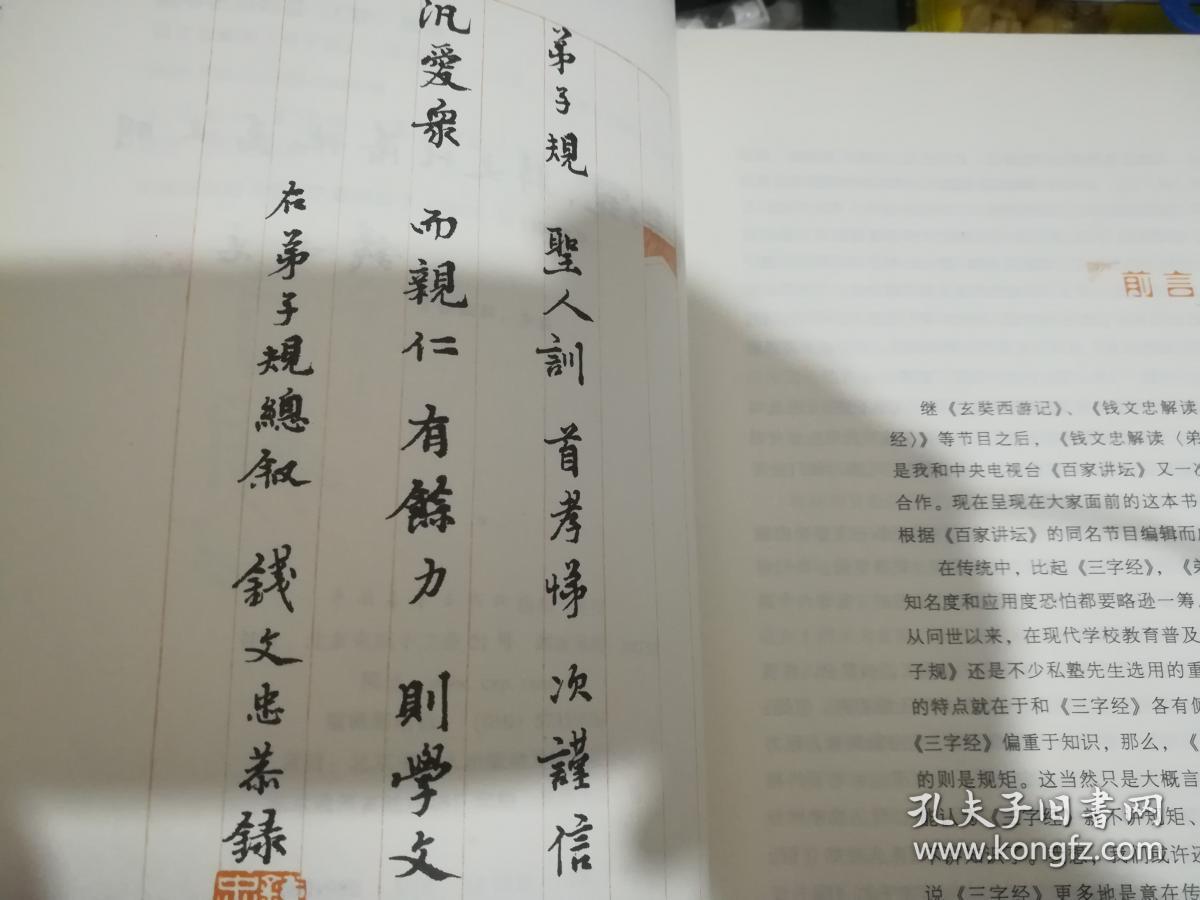 弟子規 聖人訓 首孝悌 次謹信
汎愛衆 而親仁 有餘力 則學文
右弟子規總叙 錢文忠恭録
前言
继《玄奘西游记》、《钱文忠解读
经〉》等节目之后，《钱文忠解读〈弟
是我和中央电视台《百家讲坛》又一次
合作。现在呈现在大家面前的这本书
根据《百家讲坛》的同名节目编辑而成
在传统中，比起《三字经》，《弟
知名度和应用度恐怕都要略逊一筹。
从问世以来，在现代学校教育普及
子规》还是不少私塾先生选用的重
的特点就在于和《三字经》各有侧
《三字经》偏重于知识，那么，《
的则是规矩。这当然只是大概言
能认为《三字经》就不讲规矩、
我们或许还
说《三字经》更多地是意在传
孔夫子旧书网
www.kongfz.com